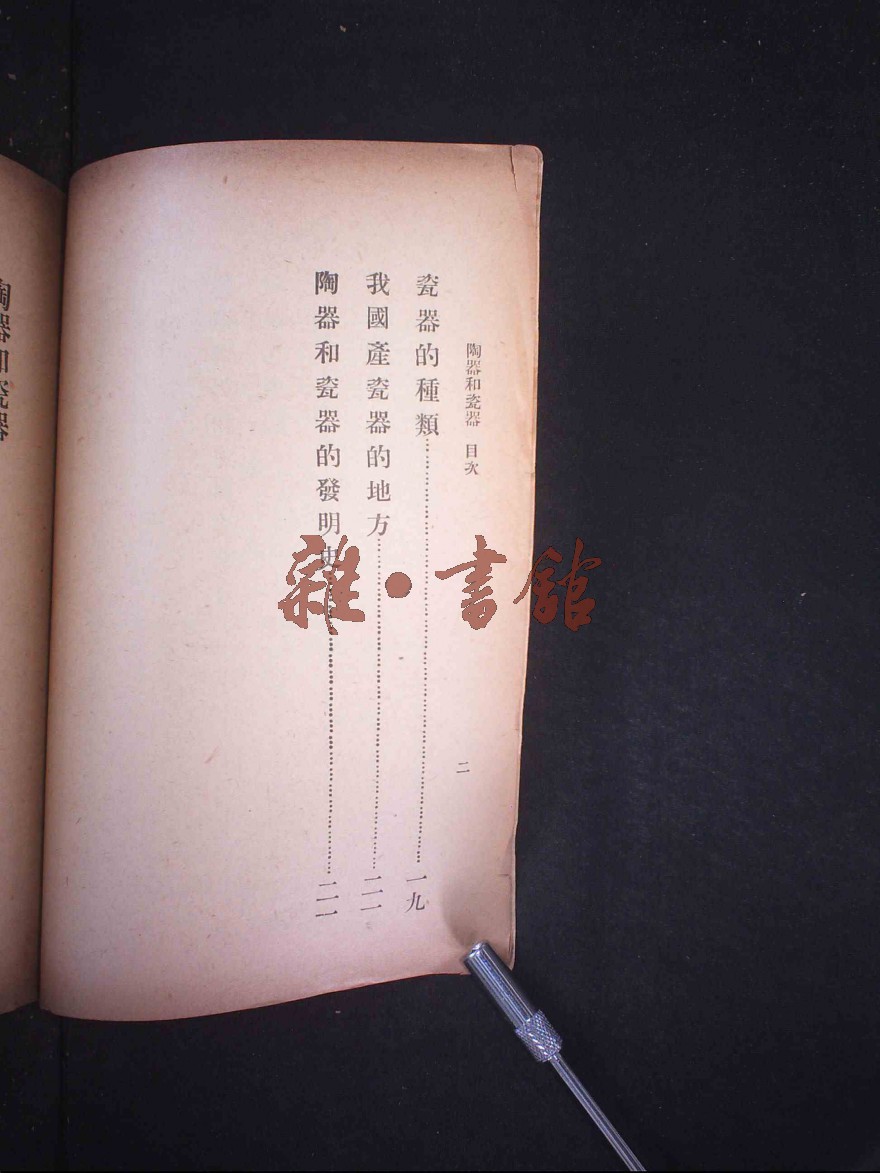 陶器和瓷器 目次
二
瓷器的種類……一九
我國產瓷器的地方……二一
陶器和瓷器的發明史……二一
陶器和瓷器
雜·書館